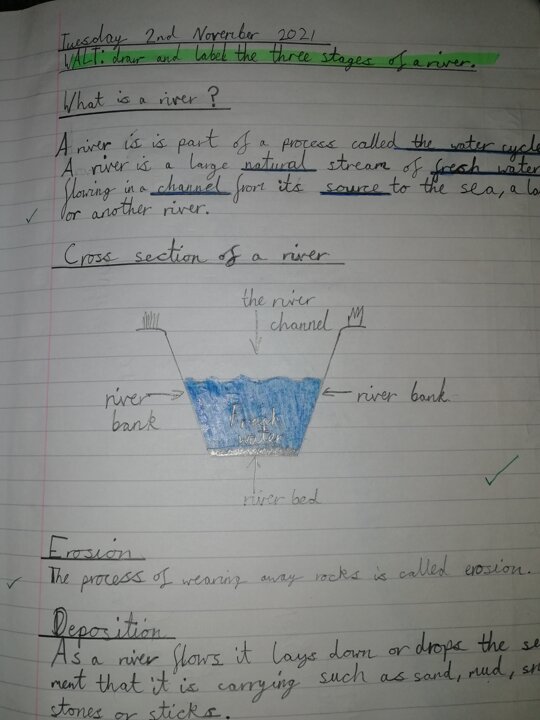 Tuesday 2nd November 2021
WALT: draw and label the three stages of a river.
What is a river?
A river is is part of a process called the water cycle
A river is a large natural stream of fresh water
flowing in a channel from its source to the sea, a la
or another river.
Cross section of a river
the river
channel
river
bank
river bank
Fresh
water
river bed
Erosion
The process of wearing away rocks is called erosion.
Deposition
As a river flows it lays down or drops the se
ment that it is carrying such as sand, mud, sm
stones or sticks.